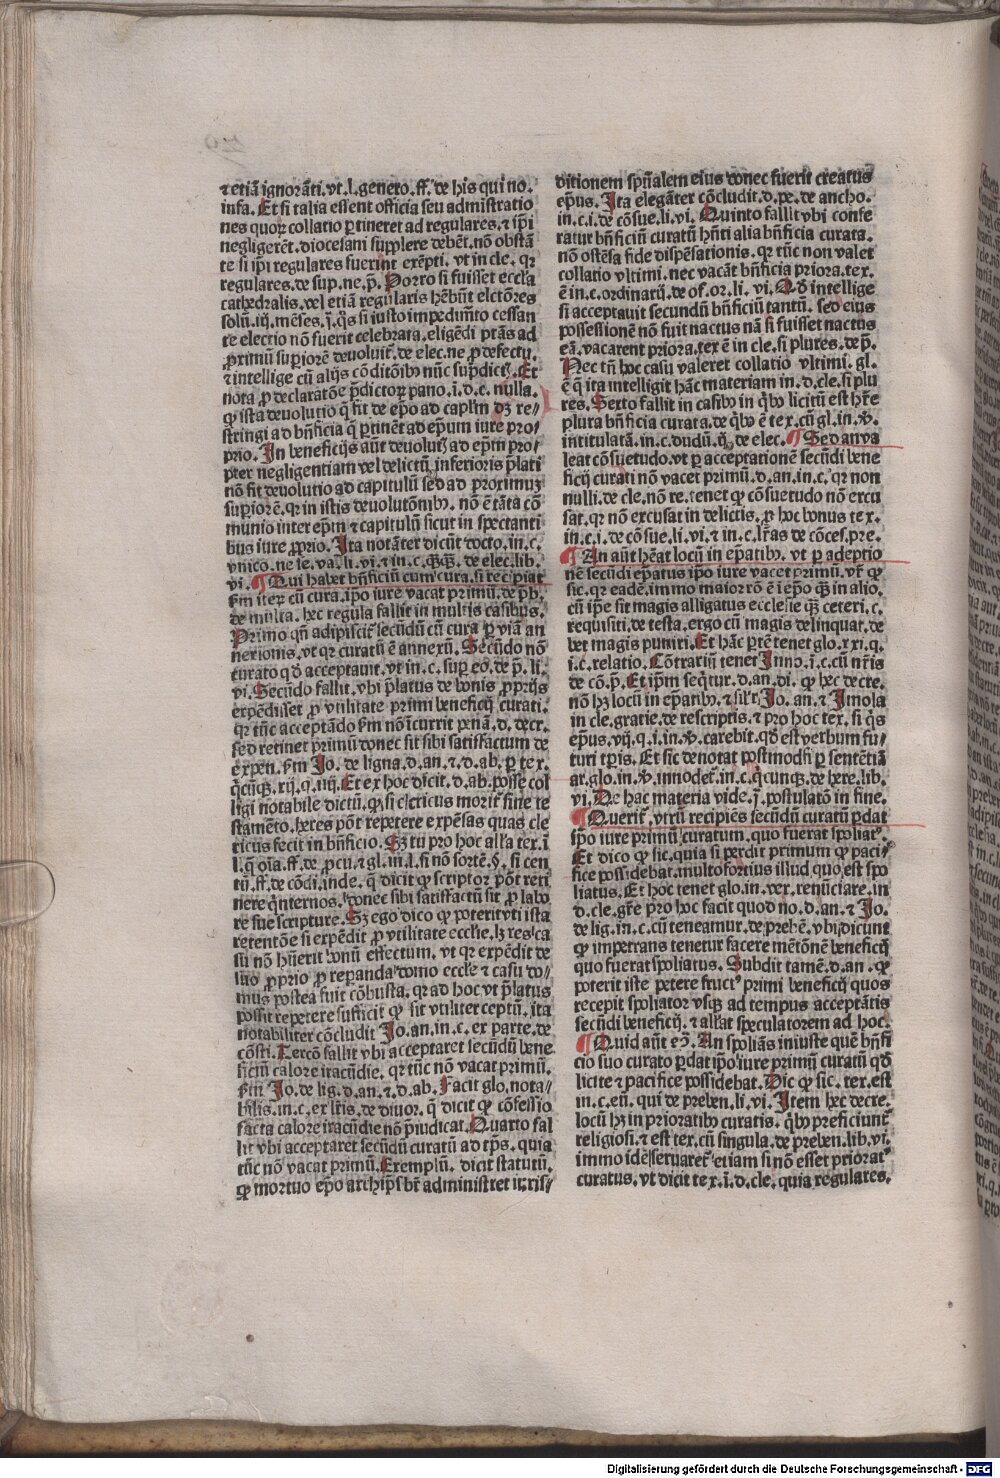 ⁊ etiã ignorãti. vt .l. genero. ff. de his qui no.
infa. Et si talia essent officia seu admistratio
nes quoꝝ collatio ꝑtineret ad regulares. ⁊ ip̃i
negligerẽt. diocesani supplere debẽt. nõ obstã
te si ip̃i regulares fuerint exẽpti. vt in cle. qꝛ
regulares. de sup. ne. p̃. Porro si fuisset eccľa
cathedralis. vel etiã regularis hẽbũt elctõres
solũ. iij. mẽses. ĩ. q̃s si iusto impedim̃to cessan
te electio nõ fuerit celebrata. eligẽdi ptãs ad
ꝓximũ supiorẽ deuoluit̃. de elec. ne ꝓ defectu.
⁊ intellige cũ alijs cõditõibꝰ nũc sup̃dict̃. Et
nota ꝓ declaratõe p̃dictoꝝ pano. ĩ. d. c. nulla.
ꝙ ista deuolutio q̃ fit de ep̃o ad capľm dꝫ re⸗
stringi ad bñficia q̃ ꝑtinẽt ad ep̃um iure pro⸗
prio. In beneficijs aũt deuolut̃ ad ep̃m pro⸗
pter negligentiam vel delictũ inferioris p̃lati
nõ fit deuolutio ad capitulũ sed ad proximuꝫ
supiorẽ. qꝛ in istis deuolutõnibꝰ. nõ ẽ tãta cõ
munio inter ep̃m ⁊ capitulũ sicut in spectanti
bus iure ꝓprio. Ita notãter dicũt docto. in. c.
vnico. ne se. va. li. vi. ⁊ in. c. q̃q̃. de elec. lib.
vi. ¶ Qui habet bñficiũ cum cura. si recipiat
ẜm iteꝝ cũ cura. ip̃o iure vacat primũ. de p̃b.
de multa. hec regula fallit in multis casibus.
Primo qñ adipiscit̃ secũdũ cũ cura ꝑ viã an
nexionis. vt qꝛ curatũ ẽ annexũ. Secũdo nõ
curato qď acceptauit. vt in. c. sup eo. de p̃. li.
vi. Secũdo fallit. vbi p̃latus de bonis ꝓprijs
expẽdisset ꝓ vtilitate primi beneficij curati.
qꝛ tũc acceptãdo ẜm nõ ĩcurrit penã. d. decr.
sed retinet primũ donec fit sibi satisfactum de
expen. ẜm Jo. de ligna. d. an. ⁊. d. ab. ꝑ tex.
q̃cũqꝫ. xij. q. iiij. Et ex hoc dicit. d. ab. posse col
ligi notabile dictũ. ꝙ si clericus morit̃ sine te
stamẽto. heres põt repetere expẽsas quas cle
ricus fecit in bñficio. Sꝫ tu pro hoc alľa tex. ĩ
l. q̃ oĩa. ff. de ꝓcu. ⁊ gl. in. l. si nõ sortẽ. §. si cen
tũ. ff. de cõdi. inde. q̃ dicit ꝙ scriptor põt reti
nere q̃nternos. donec sibi satisfactũ sit ꝓ labo
re sue scripture. Sꝫ ego dico ꝙ poterit vti ista
retentõe si expẽdit ꝓ vtilitate ecclie. lꝫ res ĩ ca
su nõ hũerit bonũ effectum. vt qꝛ expẽdit de
suo ꝓprio ꝓ repanda domo eccľe ⁊ casu do⸗
mus postea fuit cõbusta. qꝛ ad hoc vt p̃latus
possit repetere sufficit ꝙ sit vtiliter ceptũ. ita
notabiliter cõcludit Jo. an. in. c. ex parte. de
cõsti. Tercõ fallit vbi acceptaret secũdũ bene
ficiũ calore iracũdie. qꝛ tũc nõ vacat primũ.
ẜm Jo. de lig. d. an. ⁊ d. ab. Facit glo. nota⸗
bilis. in. c. ex lr̃is. de diuor. q̃ dicit ꝙ cõfessio
facta calore iracũdie nõ p̃iudicat. Quarto fal
lit vbi acceptaret secũdũ curatũ ad tp̃s. quia
tũc nõ vacat primũ. Exemplũ. dicit statutũ.
ꝙ mortuo ep̃o archip̃sbr̃ administret iuris⸗
ditionem sp̃ualem eius donec fuerit creatus
ep̃us. Ita elegãter cõcludit. d. pe. de ancho.
in. c. i. de cõsue. li. vi. Quinto fallit vbi confe
ratur bñficiũ curatũ hñti alia bñficia curata.
nõ ostẽsa fide dispẽsationis. qꝛ tũc non valet
collatio vltimi. nec vacãt bñficia priora. tex.
ẽ in. c. ordinarij. de of. or. li. vi. Qď intellige
si acceptauit secundũ bñficiũ tantũ. sed eius
possessionẽ nõ fuit nactus nã si fuisset nactus
eã. vacarent priora. tex ẽ in cle. si plures. de p̃.
Nec tñ hoc casu valeret collatio vltimi. gl.
ẽ q̃ ita intelligit hãc materiam in. d. cle. si plu
res. Sexto fallit in casibꝰ in q̃bꝰ licitũ est hr̃e
plura bñficia curata. de q̃bꝰ ẽ tex. cũ gl. in. ꝟ.
intitulatã. in. c. dudũ. ij. de elec. ¶ Sed an va
leat cõsuetudo. vt ꝑ acceptationẽ secũdi bene
ficij curati nõ vacet primũ. d. an. in. c. qꝛ non
nulli. de cle. nõ re. tenet ꝙ cõsuetudo nõ excu
sat. qꝛ nõ excusat in delictis. ꝓ hoc bonus tex.
in. c. i. de cõsue. li. vi. ⁊ in. c. lr̃as. de cõces. pre.
¶ An aũt hẽat locũ in ep̃atibꝰ. vt ꝑ adeptio
nẽ secũdi ep̃atus ip̃o iure vacet primũ. vr̃ ꝙ
sic. qꝛ eadẽ. immo maior rõ ẽ ĩ ep̃o q̃ꝫ in alio.
cũ ip̃e sit magis alligatus ecclesie q̃ꝫ ceteri. c.
requisiti. de testa. ergo cũ magis delinquat. de
bet magis puniri. Et hãc ꝑtẽ tenet glo. xxi. q.
i. c. relatio. Cõtrariũ tenet Inno. ĩ. c. cũ nr̃is
de cõ. p̃. Et ip̃m seq̃tur. d. an. di. ꝙ hec decre.
nõ hꝫ locũ in ep̃atibꝰ. ⁊ sil'r Jo. an. ⁊ Imola
in cle. gratie. de rescriptis. ⁊ pro hoc tex. si q̃s
ep̃us. vij. q. i. in. ꝟ. carebit. qď est verbum fu⸗
turi tp̃is. Et sic denotat postmodũ ꝑ sentẽtiã
ar. glo. in. ꝟ. innodet̃. in. c. q̃cunqꝫ. de here. lib.
vi. De hac materia vide. ĩ. postulatõ in fine.
¶ Querit̃. vtrũ recipiẽs secũdũ curatũ ꝑdat
ip̃o iure primũ curatum. quo fuerat spoliatꝰ.
Et dico ꝙ sic. quia si perdit primum ꝙ paci⸗
fice possidebat. multofortius illud quo est spo
liatus. Et hoc tenet glo. in. ver. renũciare. in
d. cle. gr̃e pro hoc facit quod no. d. an. ⁊ Jo.
de lig. in. c. cũ teneamur. de prebẽ. vbi dicunt
ꝙ impetrans tenetur facere mẽtõnẽ beneficij
quo fuerat spoliatus. Subdit tamẽ. d. an. ꝙ
poterit iste petere fructꝰ primi beneficij quos
recepit spoliator vsqꝫ ad tempus acceptãtis
secũdi beneficij. ⁊ alľat speculatorem ad hoc.
¶ Quid aũt eõ. An spoliãs iniuste quẽ bñfi
cio suo curato ꝑdat ip̃o iure primũ curatũ qď
licite ⁊ pacifice possidebat. Dic ꝙ sic. tex. est
in. c. eũ. qui de preben. li. vi. Item hec decre.
locũ hꝫ in prioratibꝰ curatis. q̃bꝰ preficiunt̃
religiosi. ⁊ est tex. cũ singula. de preben. lib. vi.
immo idẽ seruaret̃ etiam si nõ esset priorat⁹
curatus. vt dicit tex. ĩ. d. cle. quia regulares.
Digitalisierung gefördert durch die Deutsche Forschungsgemeinschaft - DFG